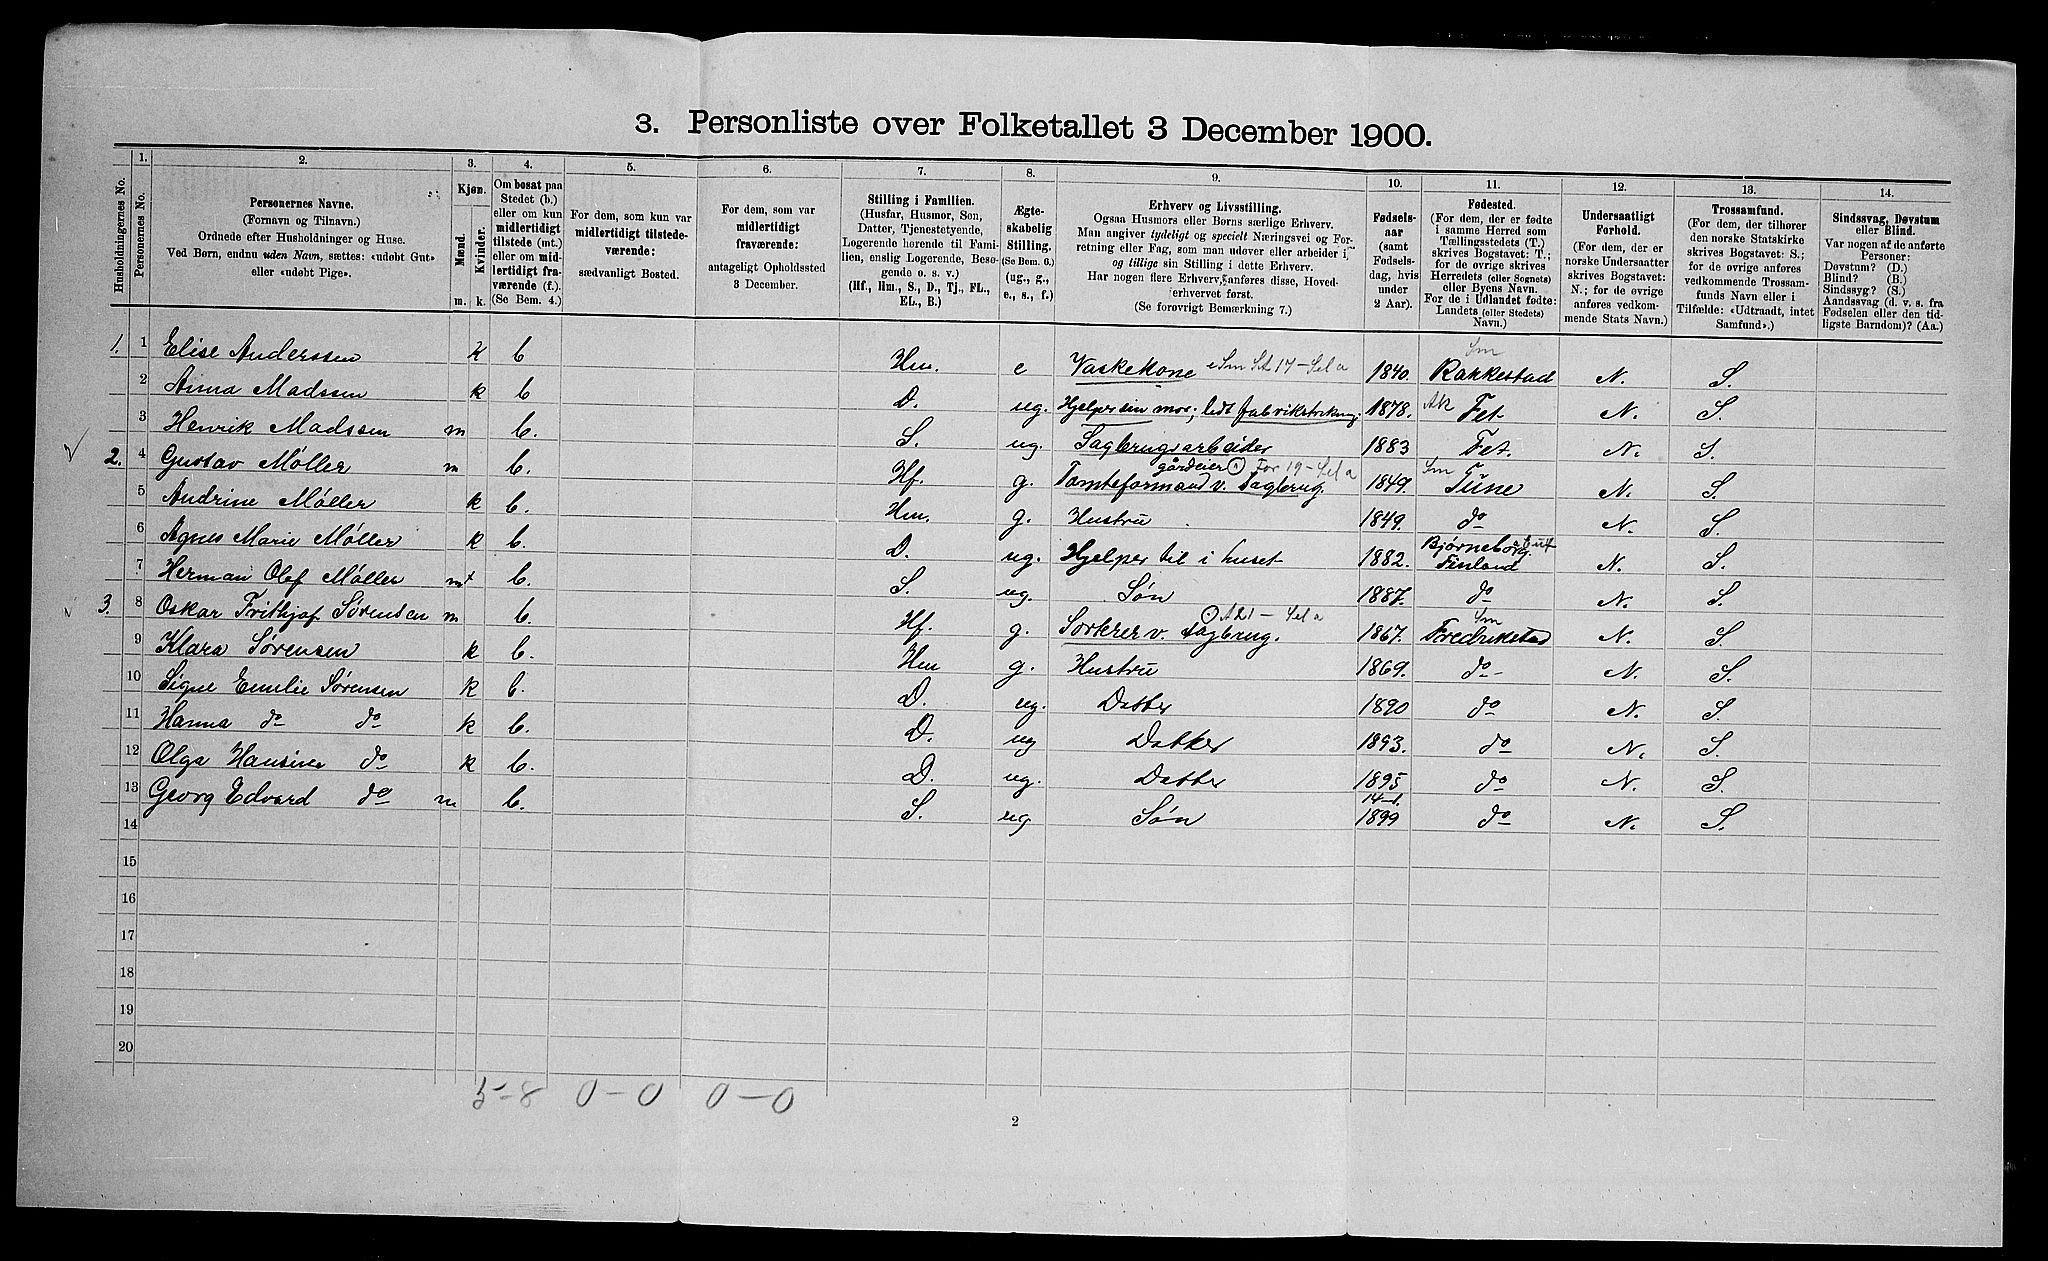 3. Personliste over Folketallet 3 December 1900.
Husholdningernes No.
1.
Personernes No.
2.
Personernes Navne.
(Fornavn og Tilnavn.)
Ordnede efter Husholdninger og Huse.
Ved Børn, endnu uden Navn, sættes: «udøbt Gut»
eller «udøbt Pige».
3.
Kjøn.
Mænd.
Kvinder.
m. k.
4.
Om bosat paa
Stedet (b.)
eller om kun
midlertidigt
tilstede (mt.)
eller om mid-
lertidigt fra-
værende (f.).
(Se Bem. 4.)
5.
For dem, som kun var
midlertidigt tilstede-
værende:
sædvanligt Bosted.
6.
For dem, som var
midlertidigt
fraværende:
antageligt Opholdssted
3 December.
7.
Stilling i Familien.
(Husfar, Husmor, Søn,
Datter, Tjenestetyende,
Logerende hørende til Fami-
lien, enslig Logerende, Besø-
gende o. s. v.)
(Hf., Hm., S., D., Tj., FL.,
EL., B.)
8.
Ægte-
skabelig
Stilling.
(Se Bem. 6.)
(ug., g.,
e., s., f.)
9.
Erhverv og Livsstilling.
Ogsaa Husmors eller Børns særlige Erhverv.
Man angiver tydeligt og specielt Næringsvei og For-
retning eller Fag, som man udøver eller arbeider i,
og tillige sin Stilling i dette Erhverv.
Har nogen flere Erhverv, anføres disse, Hoved-
erhvervet først.
(Se forøvrigt Bemærkning 7.)
10.
Fødsels-
aar
(samt
Fødsels-
dag, hvis
under
2 Aar).
11.
Fødested.
(For dem, der er fødte
i samme Herred som
Tællingsstedets (T.)
skrives Bogstavet: T.;
for de øvrige skrives
Herredets (eller Sognets)
eller Byens Navn.
For de i Udlandet fødte:
Landets (eller Stedets)
Navn.)
12.
Undersaatligt
Forhold.
(For dem, der er
norske Undersaatter
skrives Bogstavet:
N.; for de øvrige
anføres vedkom-
mende Stats Navn.)
13.
Trossamfund.
(For dem, der tilhører
den norske Statskirke
skrives Bogstavet: S.;
for de øvrige anføres
vedkommende Trossam-
funds Navn eller i
Tilfælde: «Udtraadt, intet
Samfund».)
14.
Sindssvag, Døvstum
eller Blind.
Var nogen af de anførte
Personer:
Døvstum? (D.)
Blind? (B.)
Sindssyg? (S.)
Aandssvag (d. v. s. fra
Fødselen eller den tid-
ligste Barndom)? (Aa.)
Sm
1. 1 Elise Anderssen k b Hm. e Vaskekone 1840. Rakkestad N. S.
2 Anna Madssen k b D. ug. Hjelper sin mor; ledt fabriksarbeide 1878. Ak Fet N. S.
3 Henrik Madssen m b. S. ug. Sagbrugsarbeider 1883 Fet. N. S.
gårdeier Sm
2. 4 Gustav Møller m b. Hf. g. Tomteformand v. Sagbrug. 1849. Tune N. S.
5 Andrine Møller k b. Hm. g. Hustru 1849. do N. S.
6 Agnes Marie Møller k b. D. ug. Hjelper til i huset 1882. Bjørneborg. Finland N. S.
7 Herman Olef Møller m b. S. ug. Søn 1887. do N. S.
Sm
3. 8 Oskar Frithjof Sørensen m b. Hf. g. Sorterer v. Sagbrug. 1867. Fredrikstad N. S.
9 Klara Sørensen k b. Hm g. Hustru 1869. do N. S.
10 Signe Emilie Sørensen k b. D. ug. Datter 1890 do N. S.
11 Hanna do do k b. D. ug Datter 1893. do N. S.
12 Olga Hansine do k b. D. ug. Datter 1895 do N. S.
13 Georg Edvard do m b. S. ug Søn 14-1. 1899 do N. S.
14
15
16
17
18
19
20
5-8 0-0 0-0
2